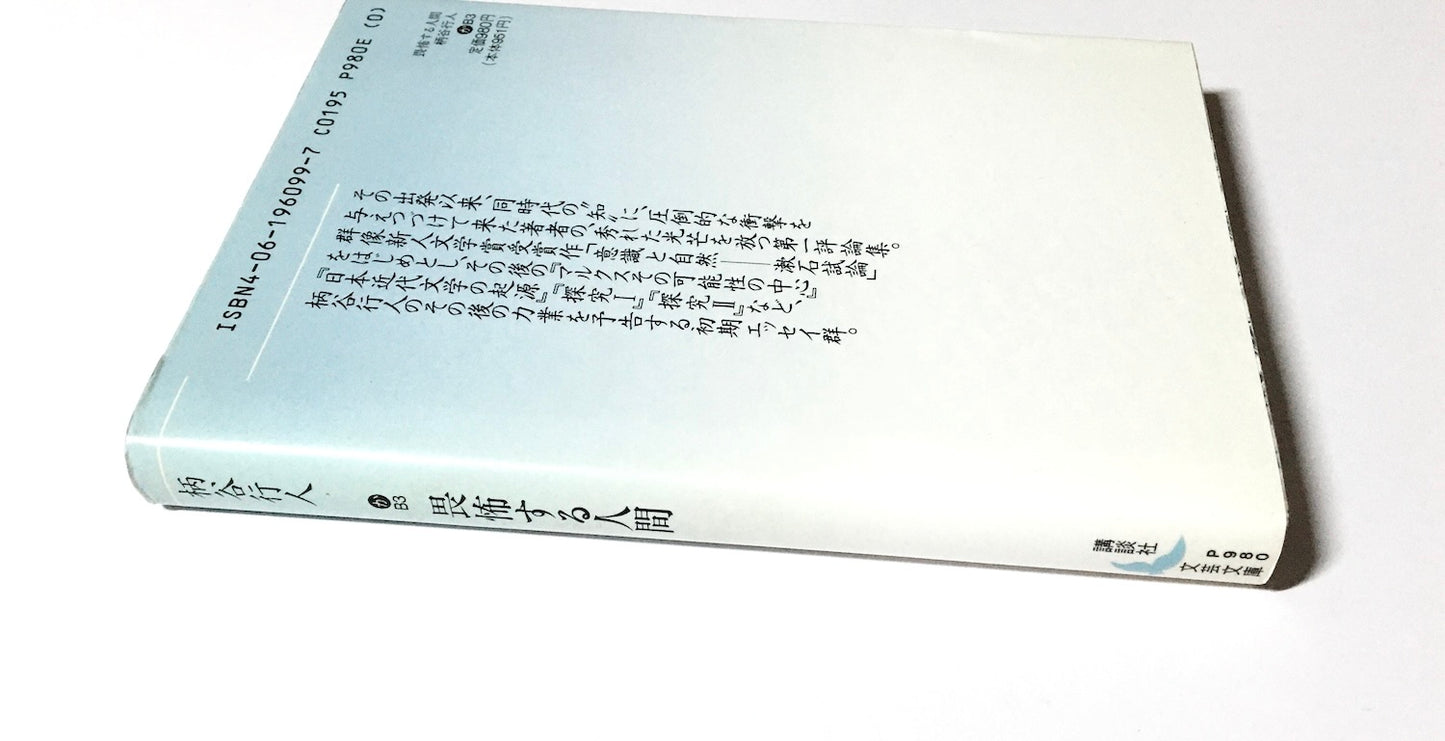 ISBN4-06-196099-7 C0195 P980E (0)
畏怖する人間
柄谷行人
か B3
定価980円
(本体951円)
その出発以来、同時代の〝知〟に、圧倒的な衝撃を
与えつづけて来た著者の、秀れた光芒を放つ第一評論集。
群像新人文学賞受賞作「意識と自然――漱石試論」
をはじめとし、その後の『マルクスその可能性の中心』
『日本近代文学の起源』『探究Ⅰ』『探究Ⅱ』など、
柄谷行人のその後の力業を予告する初期エッセイ群。
柄谷行人
か B3
畏怖する人間
講談社
文芸文庫
P980